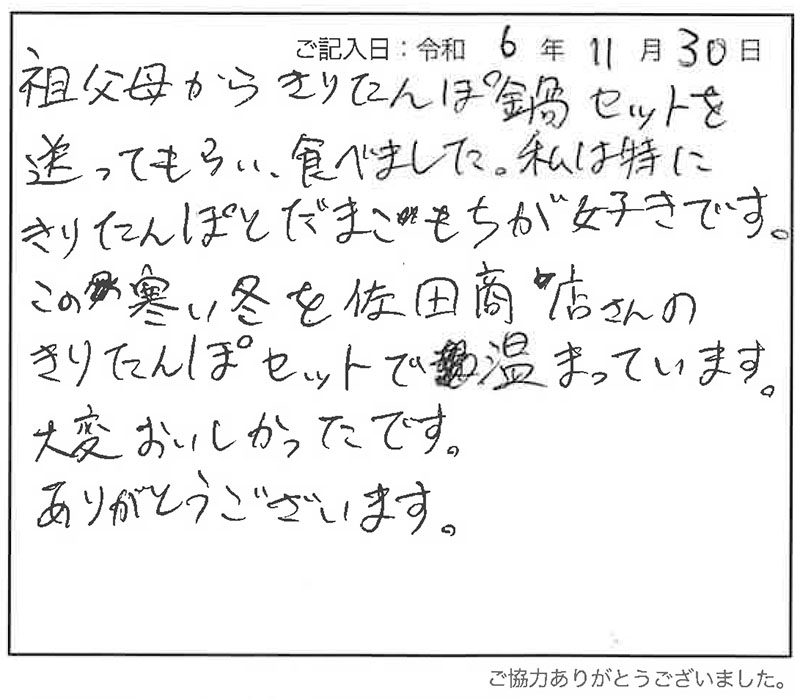 ご記入日：令和 6 年 11 月 30 日
祖父母からきりたんぽ鍋セットを
送ってもらい、食べました。私は特に
きりたんぽとだまこもちが好きです。
この寒い冬を佐田商店さんの
きりたんぽセットで温まっています。
大変おいしかったです。
ありがとうございます。
ご協力ありがとうございました。